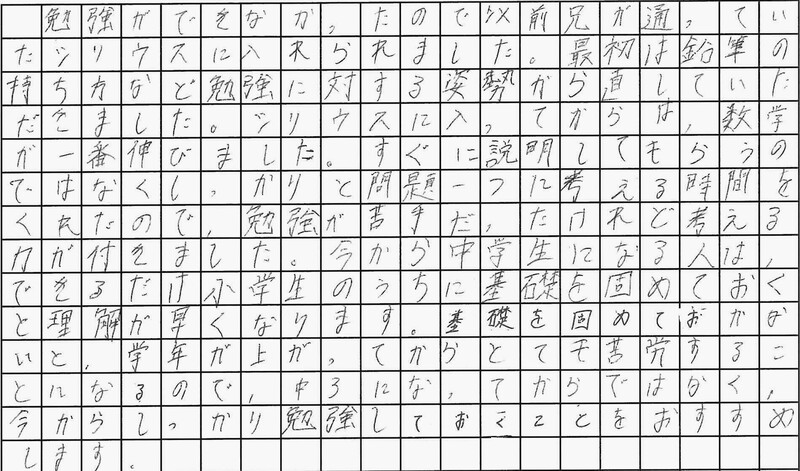 勉強ができなかったので以前兄が通ってい
たシリウスに入れられました。最初は鉛筆の
持ち方など勉強に対する姿勢から直していた
だきました。シリウスに入ってからは、数学
が一番伸びました。すぐに説明してもらうの
ではなくしっかりと問題一つに考える時間を
くれたので、勉強が苦手だったけれど考える
力が付きました。今から中学生になる人は、
できるだけ小学生のうちに基礎を固めておく
と理解が早くなります。基礎を固めておかな
いと、学年が上がってからとても苦労するこ
とになるので、中3になってからではなく、
今からしっかり勉強しておくことをおすすめ
します。